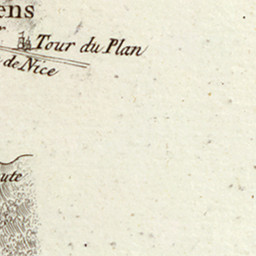 ens
Tour du Plan
de Nice
ute